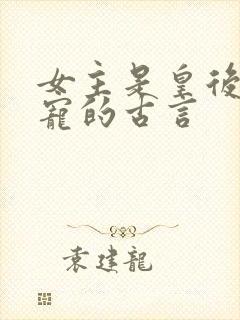 女主是皇後
寵的古言
袁建龍